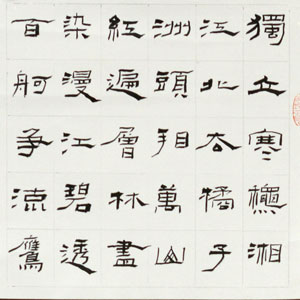 獨立寒秋湘
江北去橘子
洲頭看萬山
紅遍層林盡
染漫江碧透
百舸争流鷹